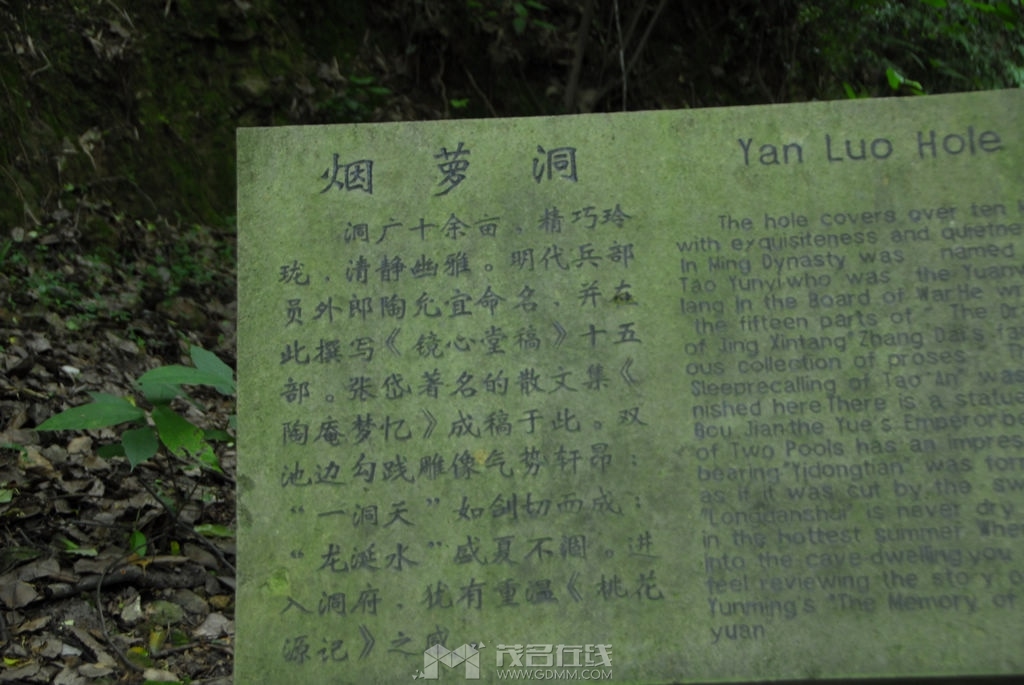 烟萝洞
洞广十余亩、精巧玲
珑、清静幽雅。明代兵部
员外郎陶允宜命名、并在
此撰写《镜心堂稿》十五
部。张岱著名的散文集《
陶庵梦忆》成稿于此。双
池边勾践雕像气势轩昂；
“一洞天”如剑切而成；
“龙涎水”盛夏不涸。进
入洞府、犹有重温《桃花
源记》之感
Yan Luo Hole
The hole covers over ten
with exquisiteness and
In Ming Dynasty was named
Tao Yunyi who was the
lang in the Board of War.He
the fifteen parts of "The
of Jing Xintang"Zhang Dai's
ous collection of proses
Sleeprecalling of Tao"An" was
nished here There is a
Bou Jian the Yue's Emperor
of Two Pools has an
bearing."Yidongtian" was
as if it was cut by the
"Longuanshui" is never dry
in the hottest summer
into the cave dwelling you
feel reviewing the story
Yunming's "The Memory of
yuan
茂名在线
WWW.GDMM.COM